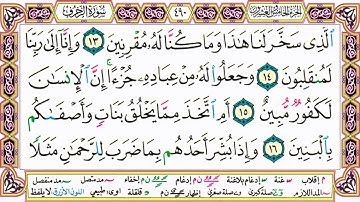 سُورَةُ الزُّخْرُفِ ٤٩٠ الجزء الخامس والعشرون
الَّذِى سَخَّرَ لَنَا هَٰذَا وَمَا كُنَّا لَهُۥ مُقْرِنِينَ ١٣ وَإِنَّآ إِلَىٰ رَبِّنَا
لَمُنقَلِبُونَ ١٤ وَجَعَلُوا۟ لَهُۥ مِنْ عِبَادِهِۦ جُزْءًا ۚ إِنَّ الْإِنسَـٰنَ
لَكَفُورٌ مُّبِينٌ ١٥ أَمِ اتَّخَذَ مِمَّا يَخْلُقُ بَنَاتٍ وَأَصْفَىٰكُم
بِالْبَنِينَ ١٦ وَإِذَا بُشِّرَ أَحَدُهُم بِمَا ضَرَبَ لِلرَّحْمَـٰنِ مَثَلًا